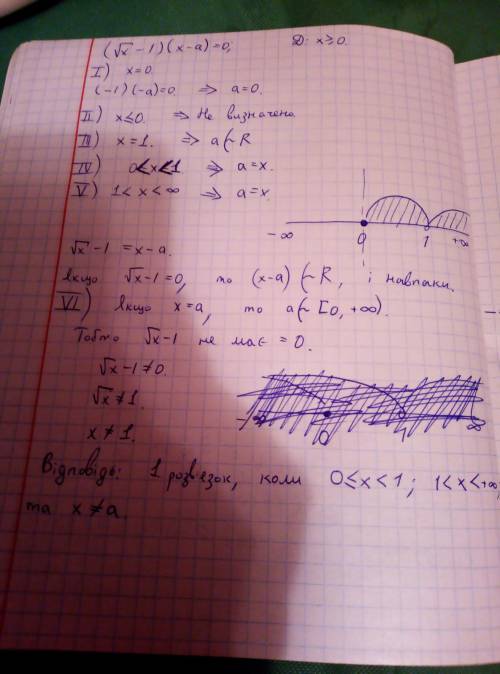 (√x - 1)(x-a)=0; D: x≥0.
I) x=0.
(-1)(-a)=0. ⇒ a=0.
II) x≤0. ⇒ Не визначено.
III) x=1. ⇒ a∈R
IV) 0<x<1. ⇒ a=x.
V) 1<x<∞ ⇒ a=x.
-∞ 0 1 +∞
√x - 1 = x-a.
Якщо √x-1=0, то (x-a)∈R, і навпаки.
VI) Якщо x=a, то a∈[0, +∞).
Тобто √x-1 не має = 0.
√x-1≠0.
√x≠1.
x≠1.
0 1 ∞
Відповідь: 1 розв'язок, коли 0≤x<1; 1<x<+∞,
та x≠a.